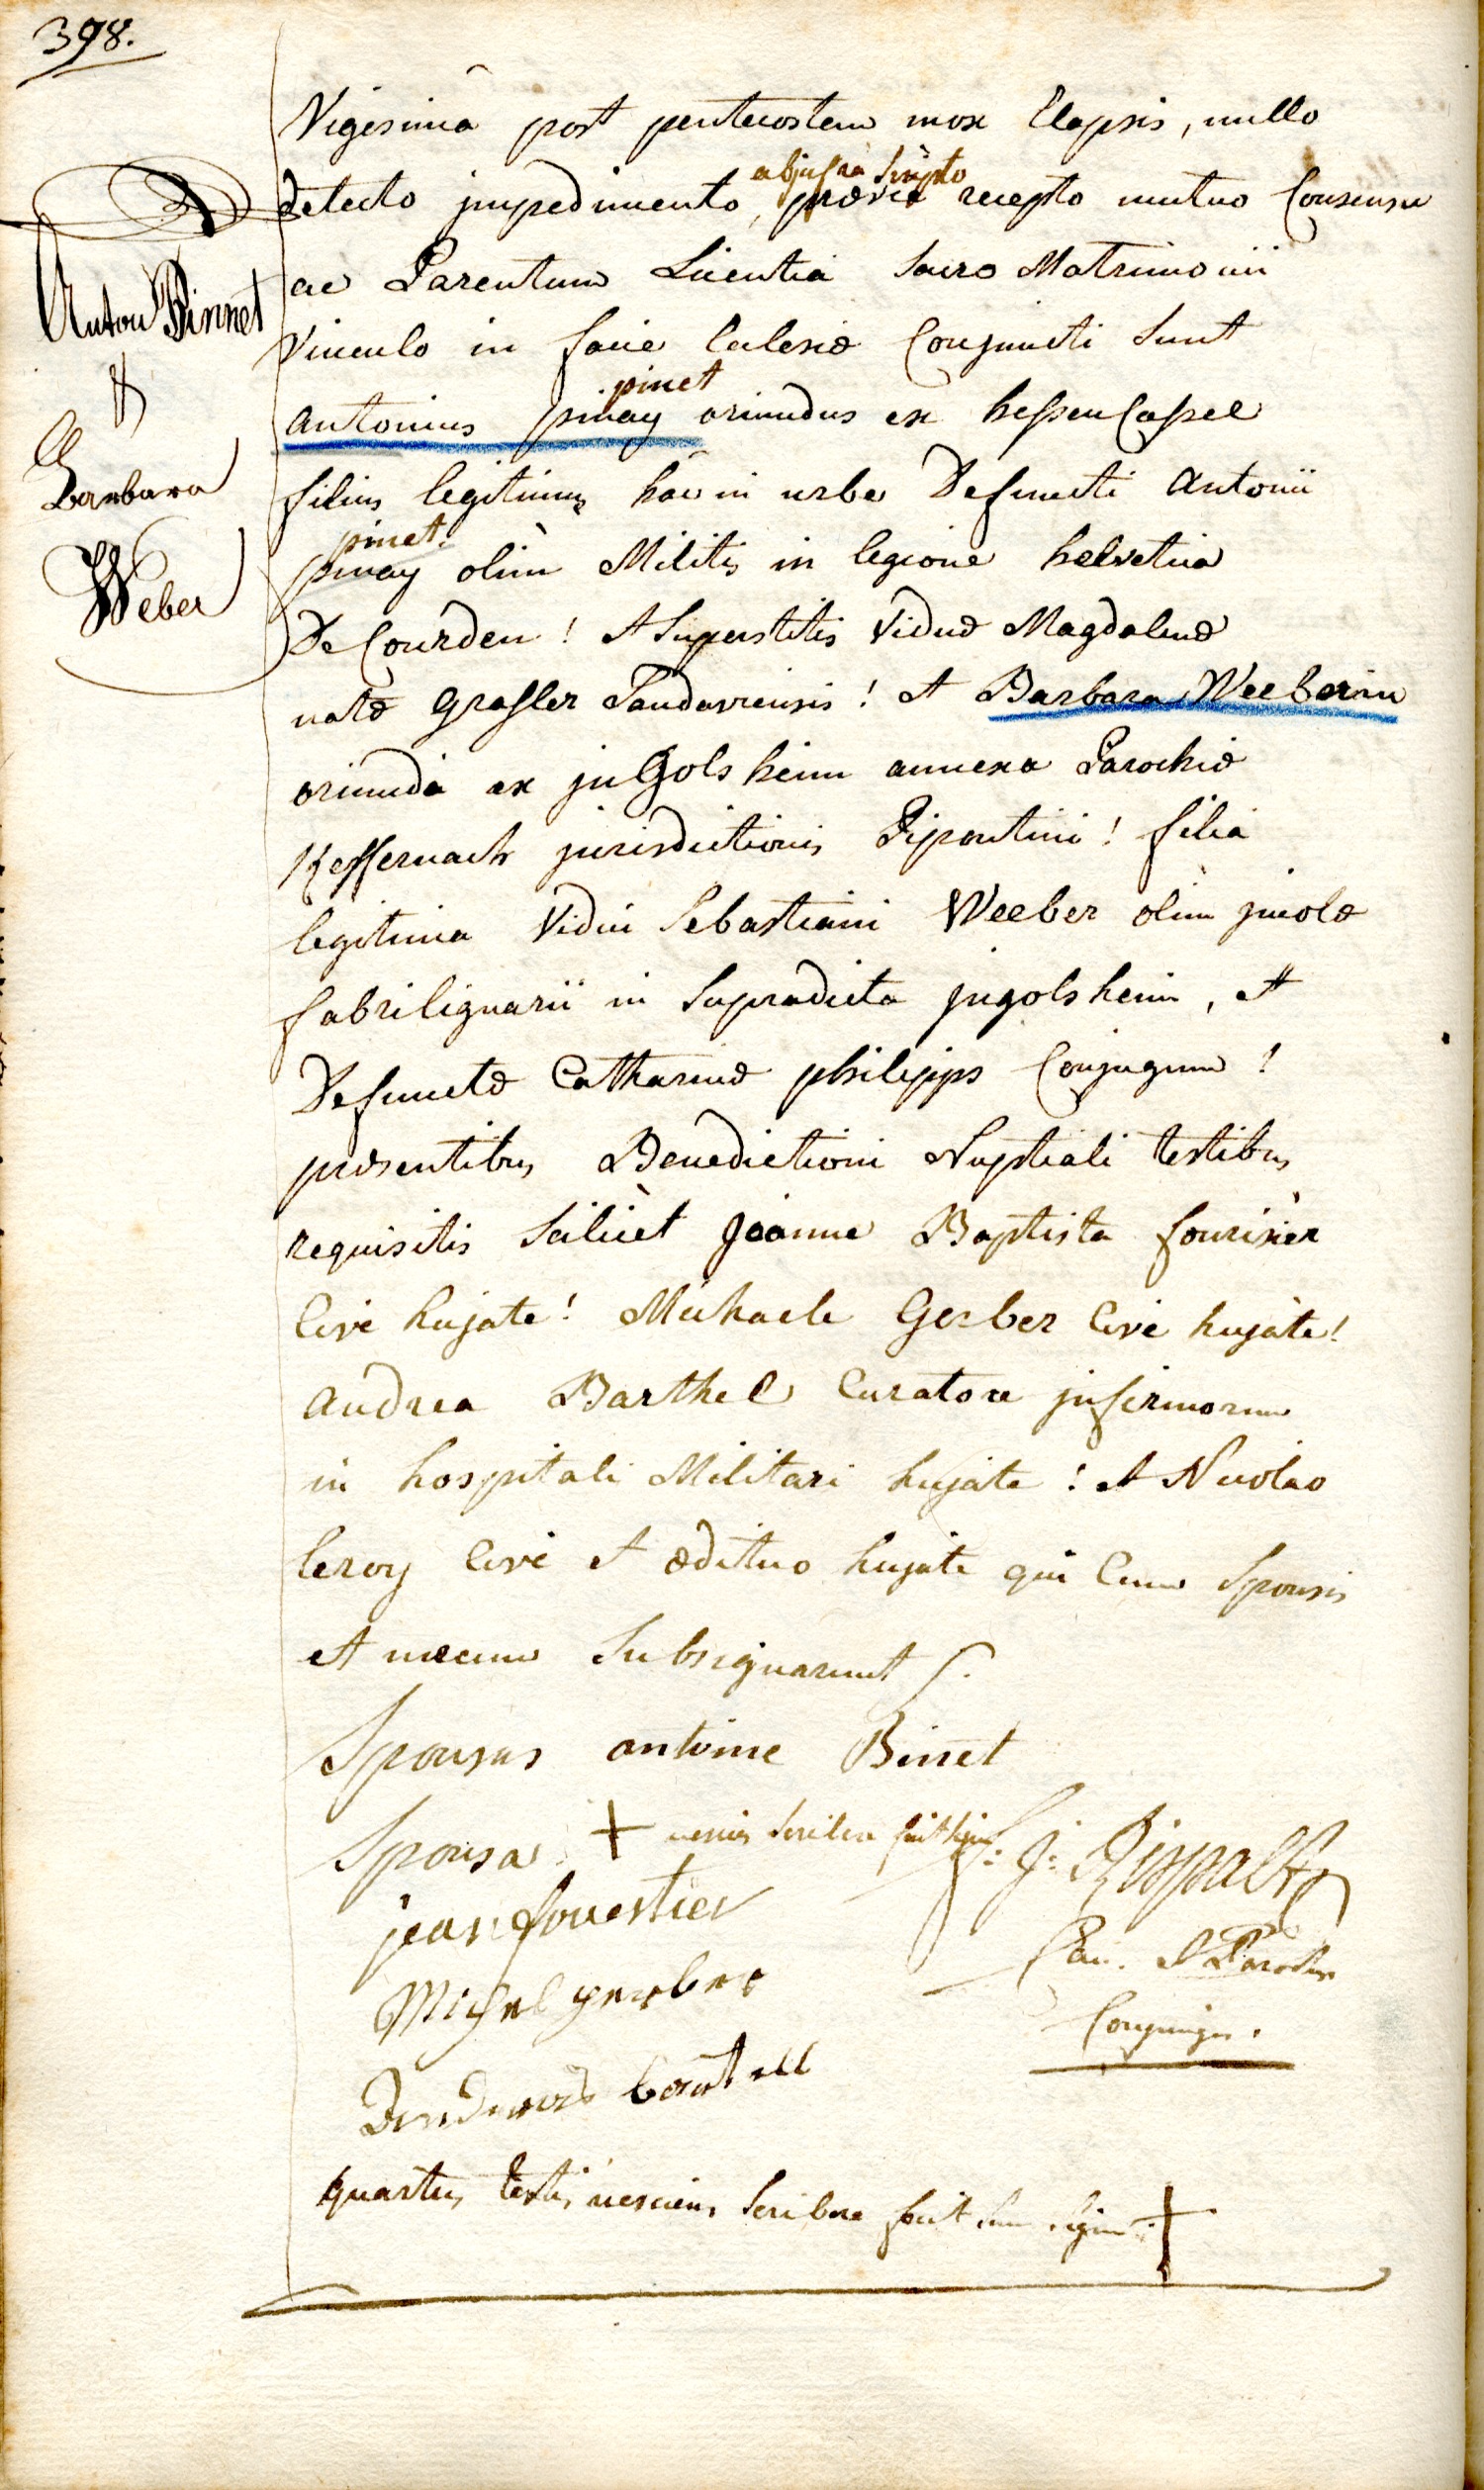 398.
Vigesima post pentecosten mox Elapsis, nullo
ab infra Scripto
detecto jmpedimento, prævie recepto mutuo Consensu
ac Parentum Licentia Sacro Matrimonii
Vinculo in facie Eclesiæ Conjuncti Sunt
pinet
antonius pinay oriundus ex hessen Cassel
filius legitimus hâc in urbe Defuncti Antonii
pinet.
pinay olim Militis in legione helvetica
De Courden! et Superstitis Viduæ Magdalenæ
natæ Grasler Landaviensis! et Barbara Weeberin
oriunda ex jnGolsheim annexa Parochiæ
Keffernach jurisdictionis Bipontini! filia
legitima Vidui Sebastiani Weeber olim jncolæ
fabrilignarii in Supradicta jngolsheim, et
Defunctæ Catharinæ philipps Conjugum!
præsentibus Benedictioni Nuptiali testibus
requisitis Scilicèt Joanne Baptista fourisier
Cive hujate! Michaele Gerber Cive hujate!
Andrea Barthel Curatore jnfirmorum
in hospitali Militari hujate! et Nicolao
leroy Cive et ædituo hujate qui Cum Sponsis
et mecum Subsignarunt
Anton Binnet
&
Barbara
Weber
Sponsus antoine Binet
Sponsa + nescia Scribere fecit signum
jean fourestier
Michel gerber
Andreas bartell
quartus testis nesciens Scribere fecit suum signum +
Can. et Parochus